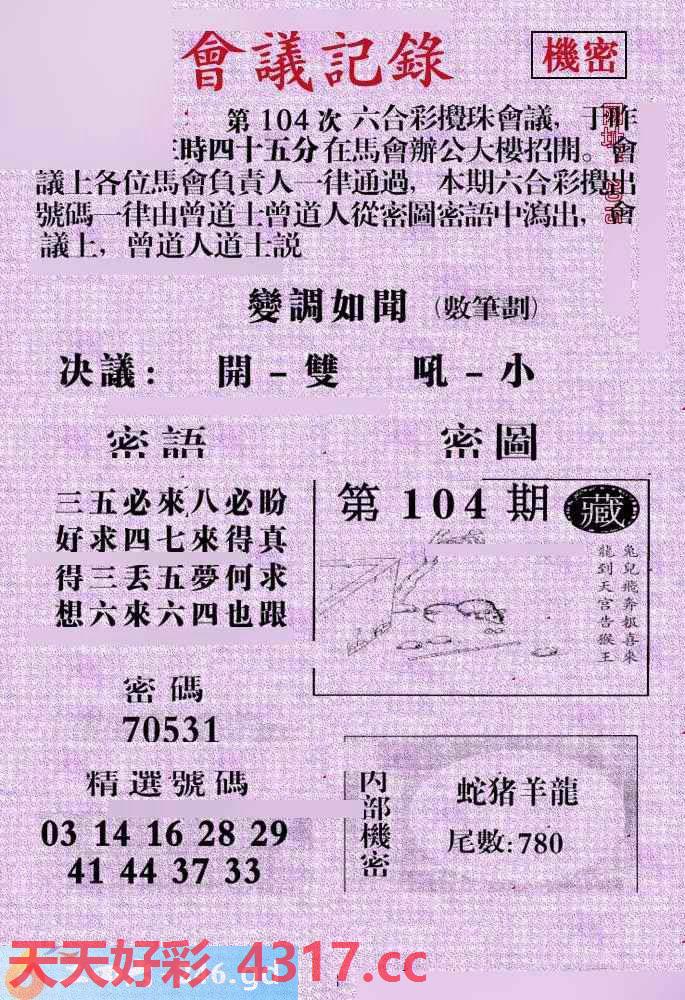 會議記錄
機密
第104次六合彩攪珠會議，于昨
時四十五分在馬會辦公大樓招開。會
議上各位馬會負責人一律通過，本期六合彩攪出
號碼一律由曾道士曾道人從密圖密語中瀉出，會
議上，曾道人道士説
變調如聞（數筆劃）
决議：開－雙 吼－小
密語
密圖
三五必來八必盼
好求四七來得真
得三丢五夢何求
想六來六四也跟
第104期 藏
兔兒飛奔报喜來
龍到天宮告猴王
密碼
70531
精選號碼
03 14 16 28 29
41 44 37 33
内部機密
蛇猪羊龍
尾數:780
天天好彩 4317.cc